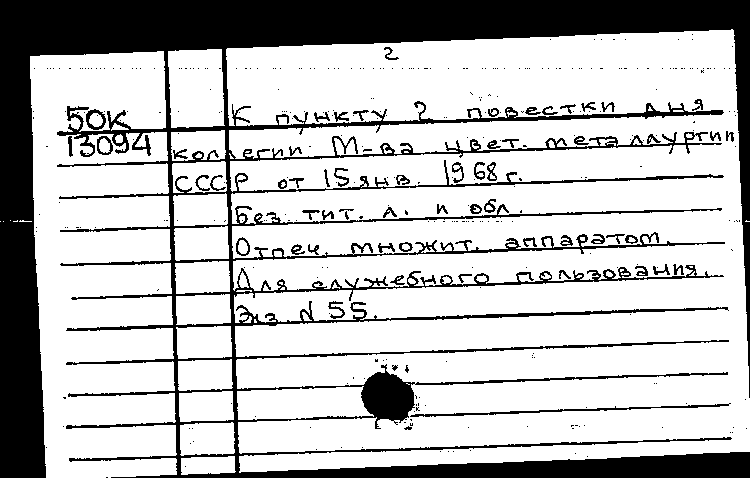 2
50к К пункту 2 повестки дня
13094 коллегии М-ва цвет. металлургии
СССР от 15 янв. 1968 г.
Без тит. л. и обл.
Отпеч. множит. аппаратом.
Для служебного пользования.
Экз. N 55.